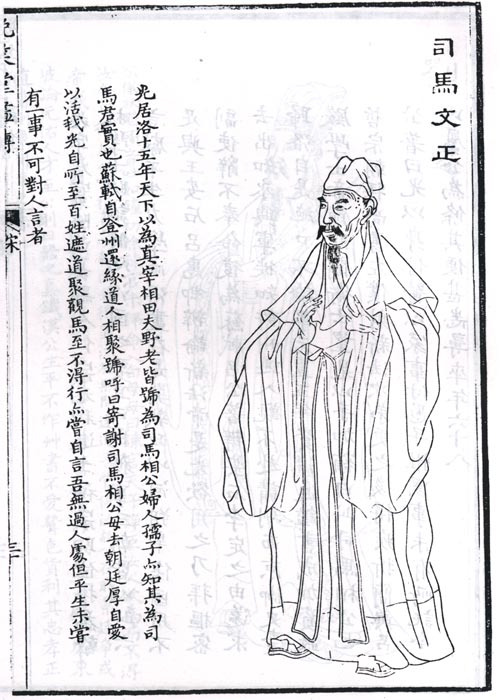 司馬文正
光居洛十五年天下以為真宰相田夫野老皆號為司馬相公婦人孺子亦知其為司
馬君實也蘇軾自登州還緣道人相聚號呼曰寄謝司馬相公毋去朝廷厚自愛
以活我光自所至百姓遮道聚觀馬至不得行亦嘗自言吾無過人處但平生未嘗
有一事不可對人言者